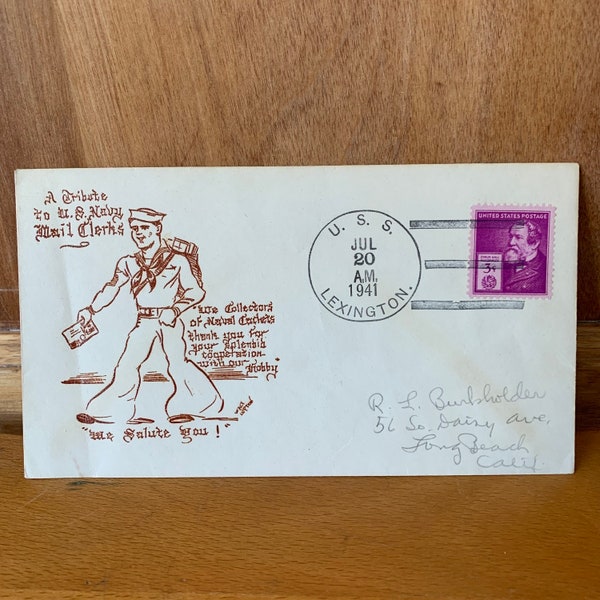 A Tribute
to U.S. Navy
Mail Clerks
"We Collectors
of Naval Cachets
thank you for
your splendid
cooperation
with our
Hobby"
"We Salute You!"
U. S. S.
JUL
20
A.M.
1941
LEXINGTON.
UNITED STATES POSTAGE
3¢
R. L. Burkholder
56 So. Daisy Ave,
Long Beach
Calif.